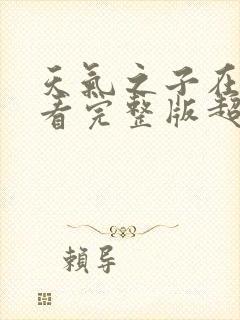 天氣之子在
看完整版超
賴导